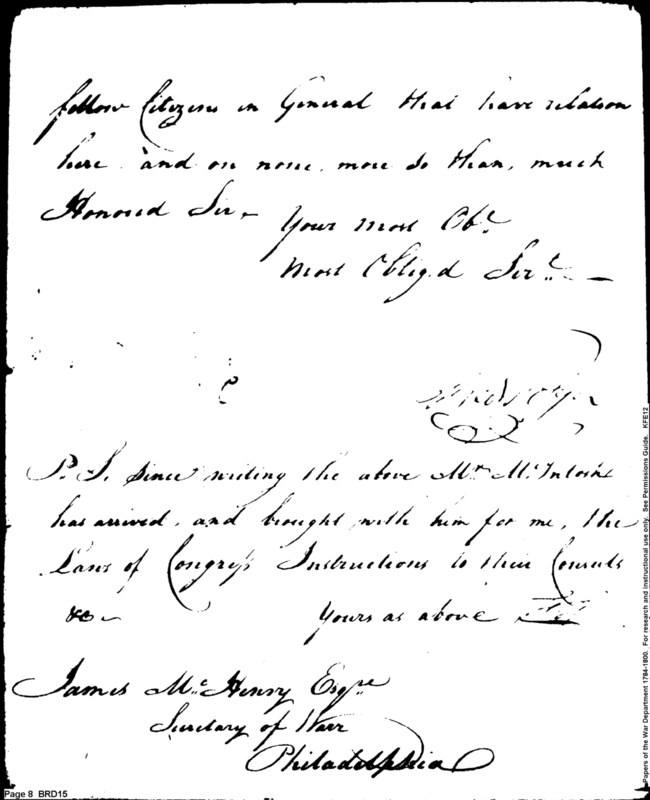 fellow Citizens in General that have relation
here and on none, more so than, much
Honored Sir,
Your most Obt
most Obliged Servt
P. S. Since writing the above Mr McIntosh
has arrived, and brought with him for me, the
Laws of Congress Instructions to their Consuls
&c
Yours as above
James McHenry Esqre
Secretary of Warr
Philadelphia
Page 8 BRD15
Papers of the War Department 1784-1800. For research and instructional use only. See Permissions Guide. KFE12